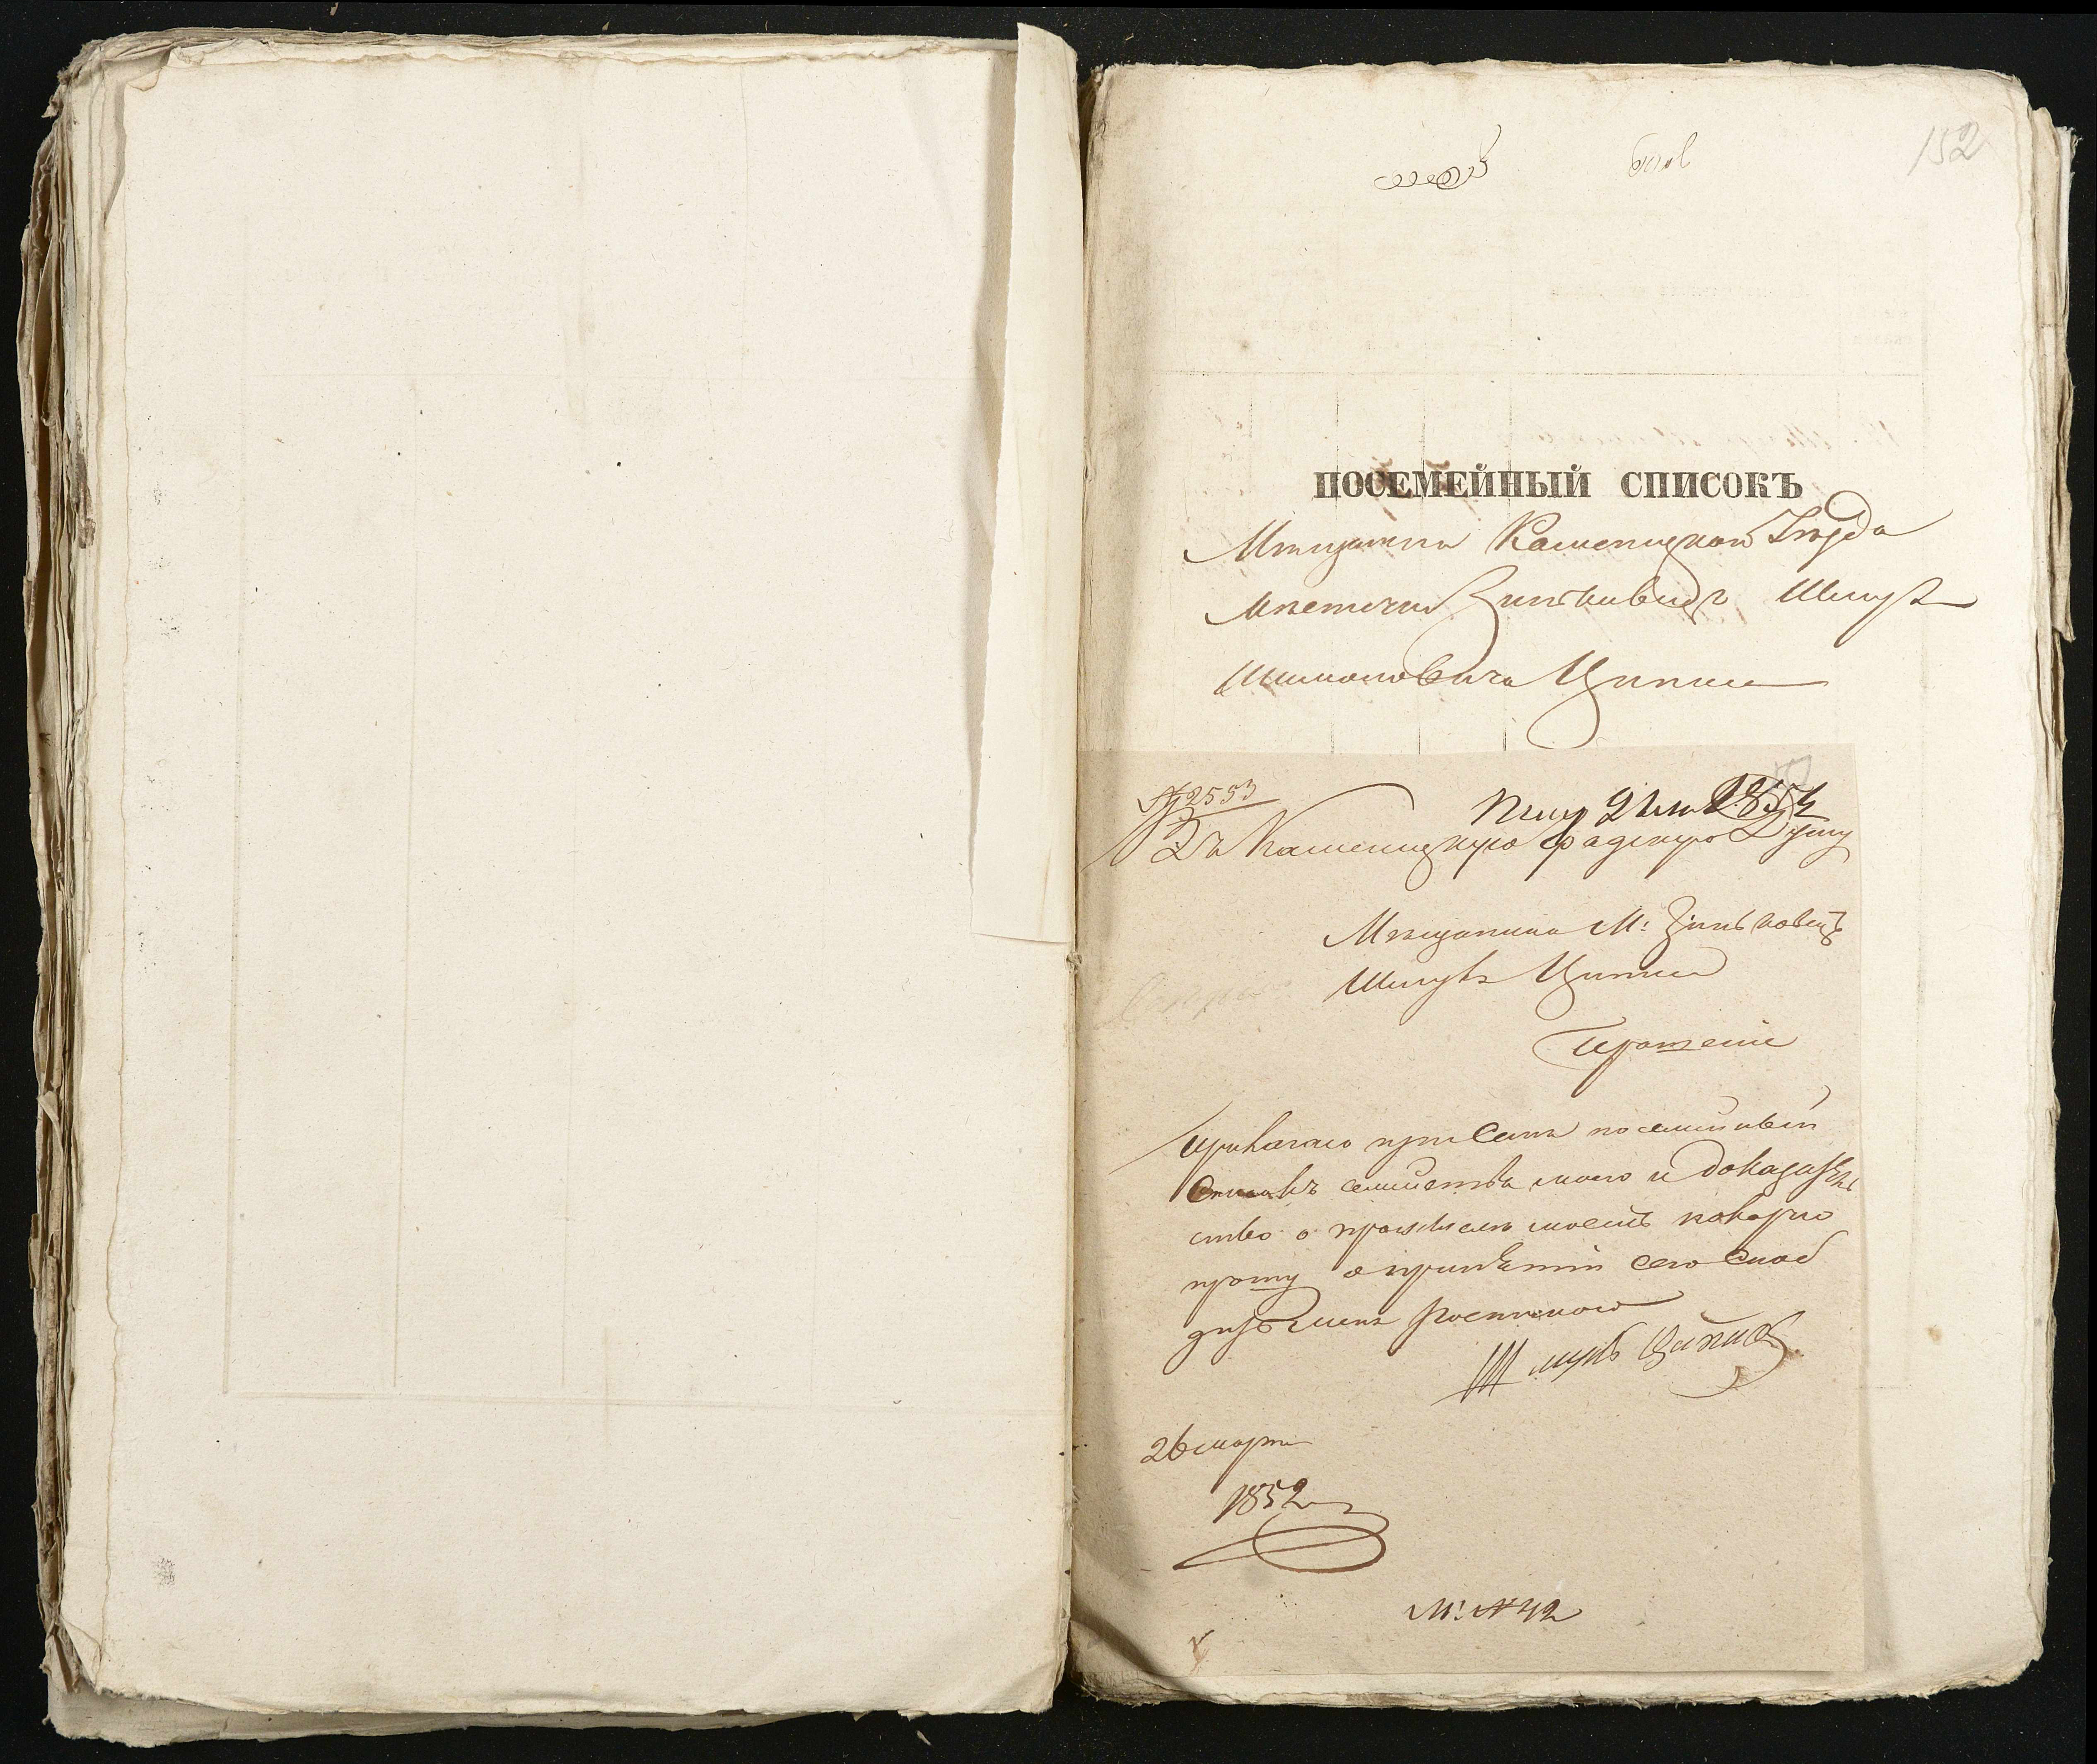 152
ПОСЕМЕЙНЫЙ СПИСОКЪ
Мещанина Каменецкаго Уезда
местечка Зиньковецъ Шмуля
Шимоновича Циписа
№ 2553
Въ Каменецкую Градскую Думу
Мещанина М: Зиньковецъ
Шмуль Циписа
Прошеніе
Прилагаю при семъ посемейный
Списокъ семейства моего и доказатель
ство о промысле моемъ покорно
прошу о принятіи сего снаб
дить меня роспискою
Шмуль Ципис
26 марта
1852
М: № 42